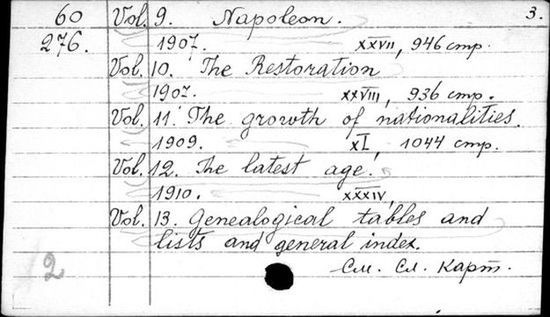 60 Vol. 9. Napoleon. 3.
276. 1907. XXVII, 946 стр.
Vol. 10. The Restoration
1907. XXVIII, 936 стр.
Vol. 11. The growth of nationalities.
1909. XI, 1044 стр.
Vol. 12. The latest age.
1910. XXXIV,
Vol. 13. Genealogical tables and
lists and general index.
2 См. сл. карт.